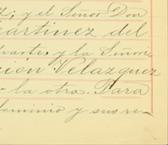 y el Señor Don
Martinez del
parte, y la Señora
Velazquez
la otra. Para
dominio y sus re-